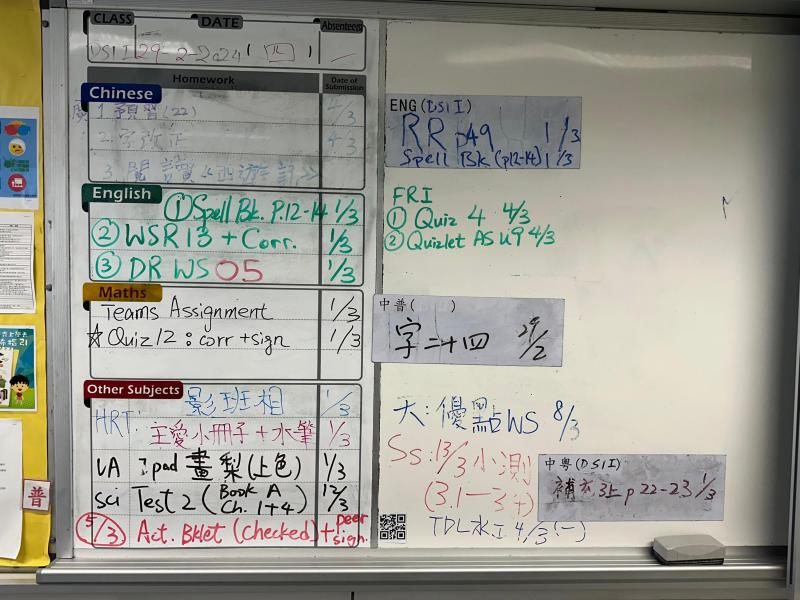 CLASS DATE Absenteen
29-2-2024 (四) /
Homework Date of Submission
Chinese
1. 預習(22) 4/3
2. 字改正 4/3
3. 閱讀《西遊記》
English
① Spell Bk. P.12-14 1/3
② WSR 13 + Corr. 1/3
③ DR WS 05 1/3
Maths
Teams Assignment 1/3
☆ Quiz 12 : corr + sign 1/3
Other Subjects
影班相 1/3
HRT: 主愛小冊子 + 水筆 1/3
VA ipad 畫梨(上色) 1/3
Sci Test 2 (Book A Ch. 1+4) 12/3
5/3 Act. Bklet (checked) + peer sign.
普
ENG (DSI I)
RR p49 1/3
Spell Bk (p12-14) 1/3
FRI
① Quiz 4 4/3
② Quizlet AS U9 4/3
中普( )
字二十四 29/2
大: 優點WS 8/3
Ss: 13/3 小測
中粵(DSI I)
補充 3上 p22-23 1/3
4/3 (一)